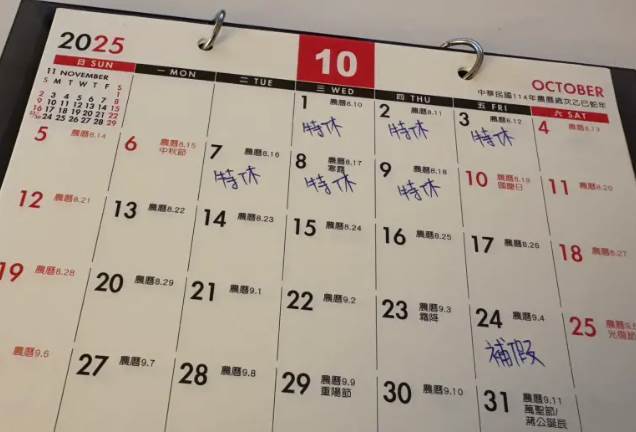 2025
10
OCTOBER
中華民國114年農曆歲次乙巳蛇年
日 SUN 一 MON 二 TUE 三 WED 四 THU 五 FRI 六 SAT
11 NOVEMBER
S M T W T F S
1
2 3 4 5 6 7 8
9 10 11 12 13 14 15
16 17 18 19 20 21 22
23/30 24 25 26 27 28 29
1 農曆8.10 2 農曆8.11 3 農曆8.12 4 農曆8.13
特休 特休 特休
5 農曆8.14 6 農曆8.15 7 農曆8.16 8 農曆8.17 9 農曆8.18 10 農曆8.19 11 農曆8.20
中秋節 寒露 國慶日
特休 特休 特休
12 農曆8.21 13 農曆8.22 14 農曆8.23 15 農曆8.24 16 農曆8.25 17 農曆8.26 18 農曆8.27
19 農曆8.28 20 農曆8.29 21 農曆9.1 22 農曆9.2 23 農曆9.3 24 農曆9.4 25 農曆9.5
霜降 光復節
補假
農曆9.6 27 農曆9.7 28 農曆9.8 29 農曆9.9 30 農曆9.10 31 農曆9.11
重陽節 萬聖節/
蔣公誕辰